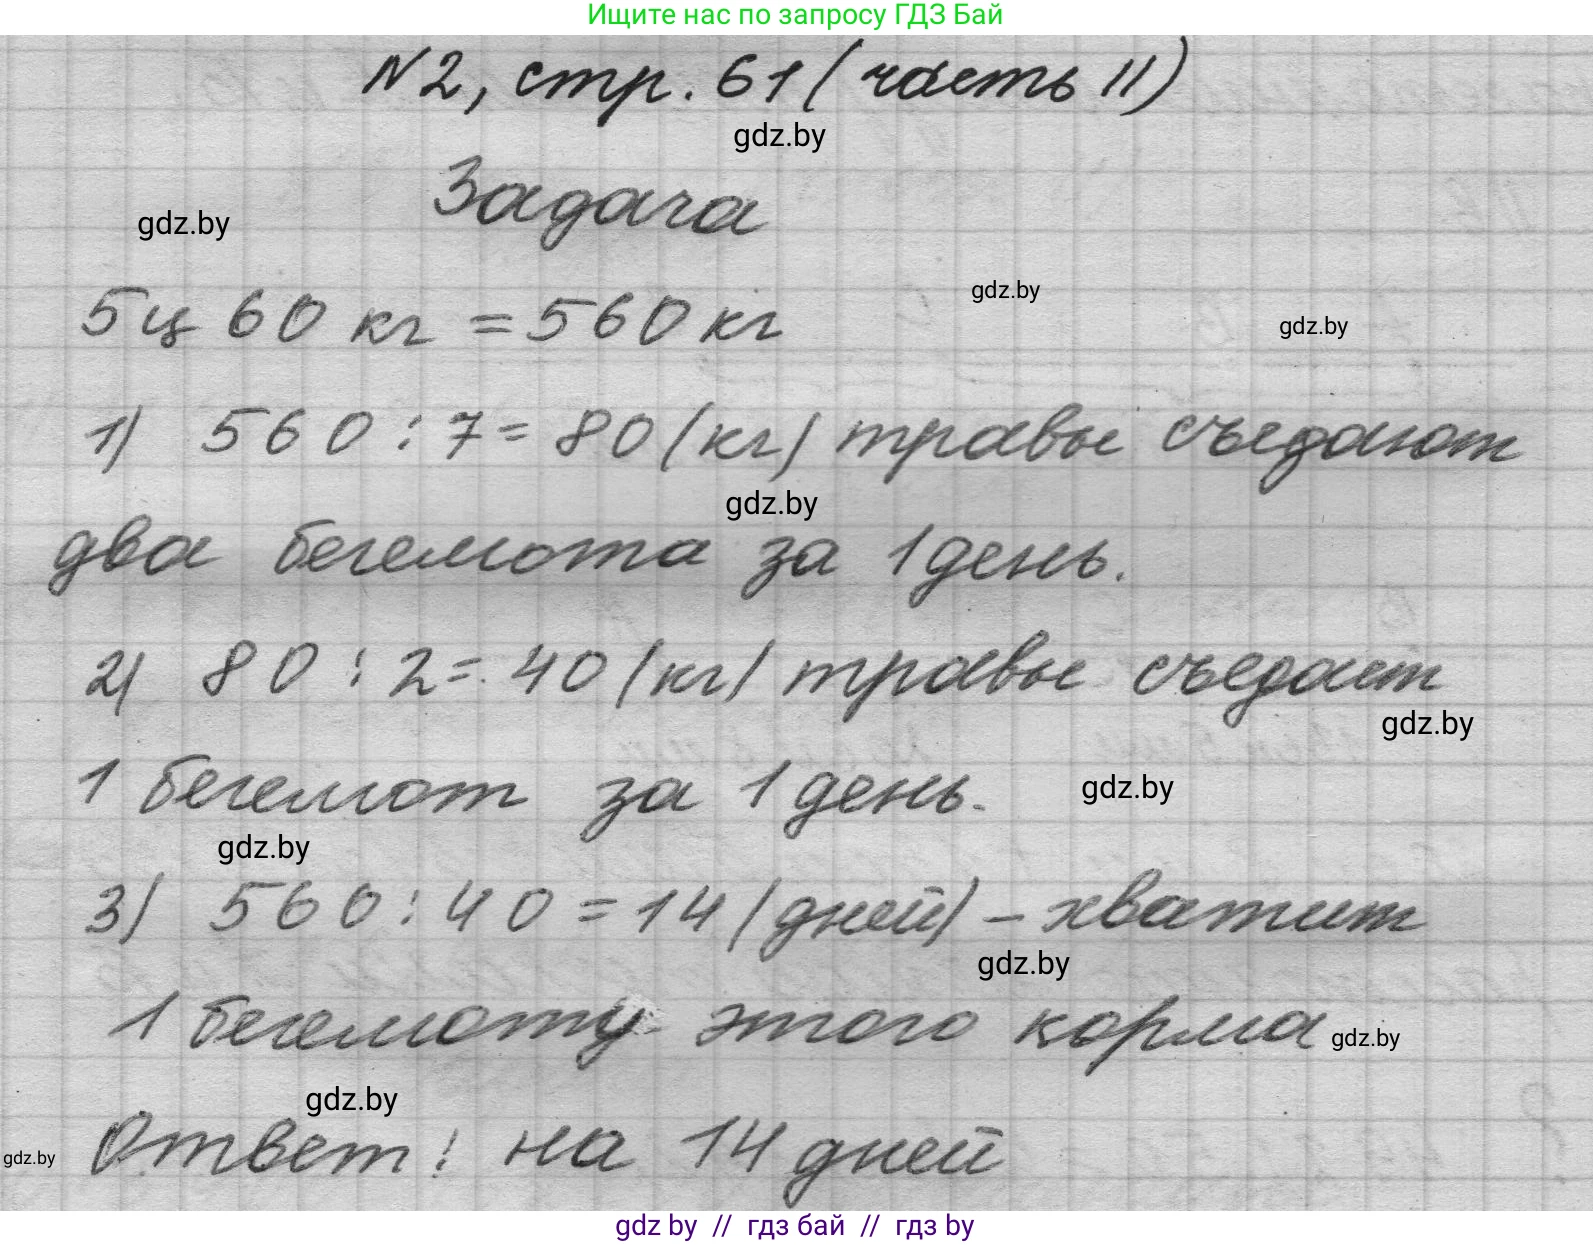 Ищите нас по запросу ГДЗ Бай
№2, стр. 61 (часть II)
gdz.by
Задача
gdz.by
gdz.by
5ц 60 кг = 560 кг
gdz.by
1) 560 : 7 = 80 (кг) травы съедают
gdz.by
два бегемота за 1 день.
2) 80 : 2 = 40 (кг) травы съедает
gdz.by
1 бегемот за 1 день.
gdz.by
gdz.by
3) 560 : 40 = 14 (дней) – хватит
gdz.by
1 бегемоту этого корма
gdz.by
gdz.by
Ответ: на 14 дней
gdz.by
gdz by // гдз бай // гдз by